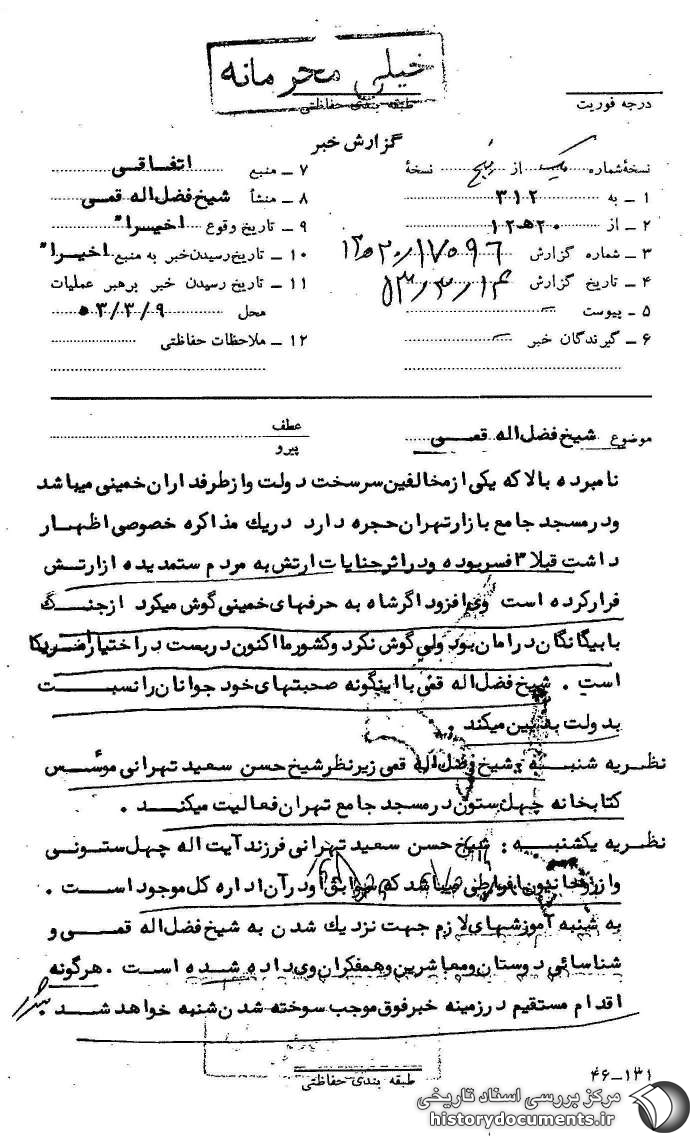 خیلی محرمانه
طبقه بندی حفاظتی
درجه فوریت
گزارش خبر
نسخهٔ شماره یک از پنج نسخهٔ
۱ ـ به ۳۱۲
۲ ـ از ۲۰ هـ ۱۲
۳ ـ شماره گزارش
۴ ـ تاریخ گزارش
۵ ـ پیوست
۶ ـ گیرندگان خبر
۷ ـ منبع اتفاقی
۸ ـ منشأ شیخ فضل اله قمی
۹ ـ تاریخ وقوع اخیراً
۱۰ ـ تاریخ رسیدن خبر به منبع اخیراً
۱۱ ـ تاریخ رسیدن خبر برهبر عملیات
محل ۵۳/۳/۹
۱۲ ـ ملاحظات حفاظتی
موضوع شیخ فضل اله قمی
عطف
پیرو
نامبرده بالا که یکی از مخالفین سرسخت دولت و از طرفداران خمینی میباشد
و در مسجد جامع بازار تهران حجره دارد در یک مذاکره خصوصی اظهار
داشت قبلا ۳ افسر بوده و در اثر جنایات ارتش به مردم ستمدیده از ارتش
فرار کرده است وی افزود اگر شاه به حرفهای خمینی گوش میکرد از جنگ
با بیگانگان در امان بود ولی گوش نکرد و کشور ما اکنون دربست در اختیار امریکا
است . شیخ فضل اله قمی با اینگونه صحبتهای خود جوانان را نسبت
بدولت بدبین میکند .
نظریه شنبه : شیخ فضل اله قمی زیر نظر شیخ حسن سعید تهرانی موسس
کتابخانه چهل ستون در مسجد جامع تهران فعالیت میکند .
نظریه یکشنبه : شیخ حسن سعید تهرانی فرزند آیت اله چهل ستونی
و از روحانیون افراطی میباشد که سوابق او در آن اداره کل موجود است .
به شنبه آموزشهای لازم جهت نزدیک شدن به شیخ فضل اله قمی و
شناسائی دوستان و معاشرین و همفکران وی داده شده است . هرگونه
اقدام مستقیم در زمینه خبر فوق موجب سوخته شدن شنبه خواهد شد
طبقه بندی حفاظتی
۴۶-۱۳۱
مرکز بررسی اسناد تاریخی
historydocuments.ir